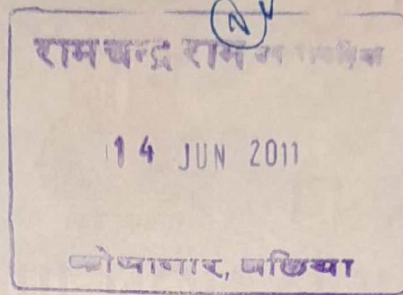 2
रामचन्द्र राम
14 JUN 2011
कोषागार, बलिया